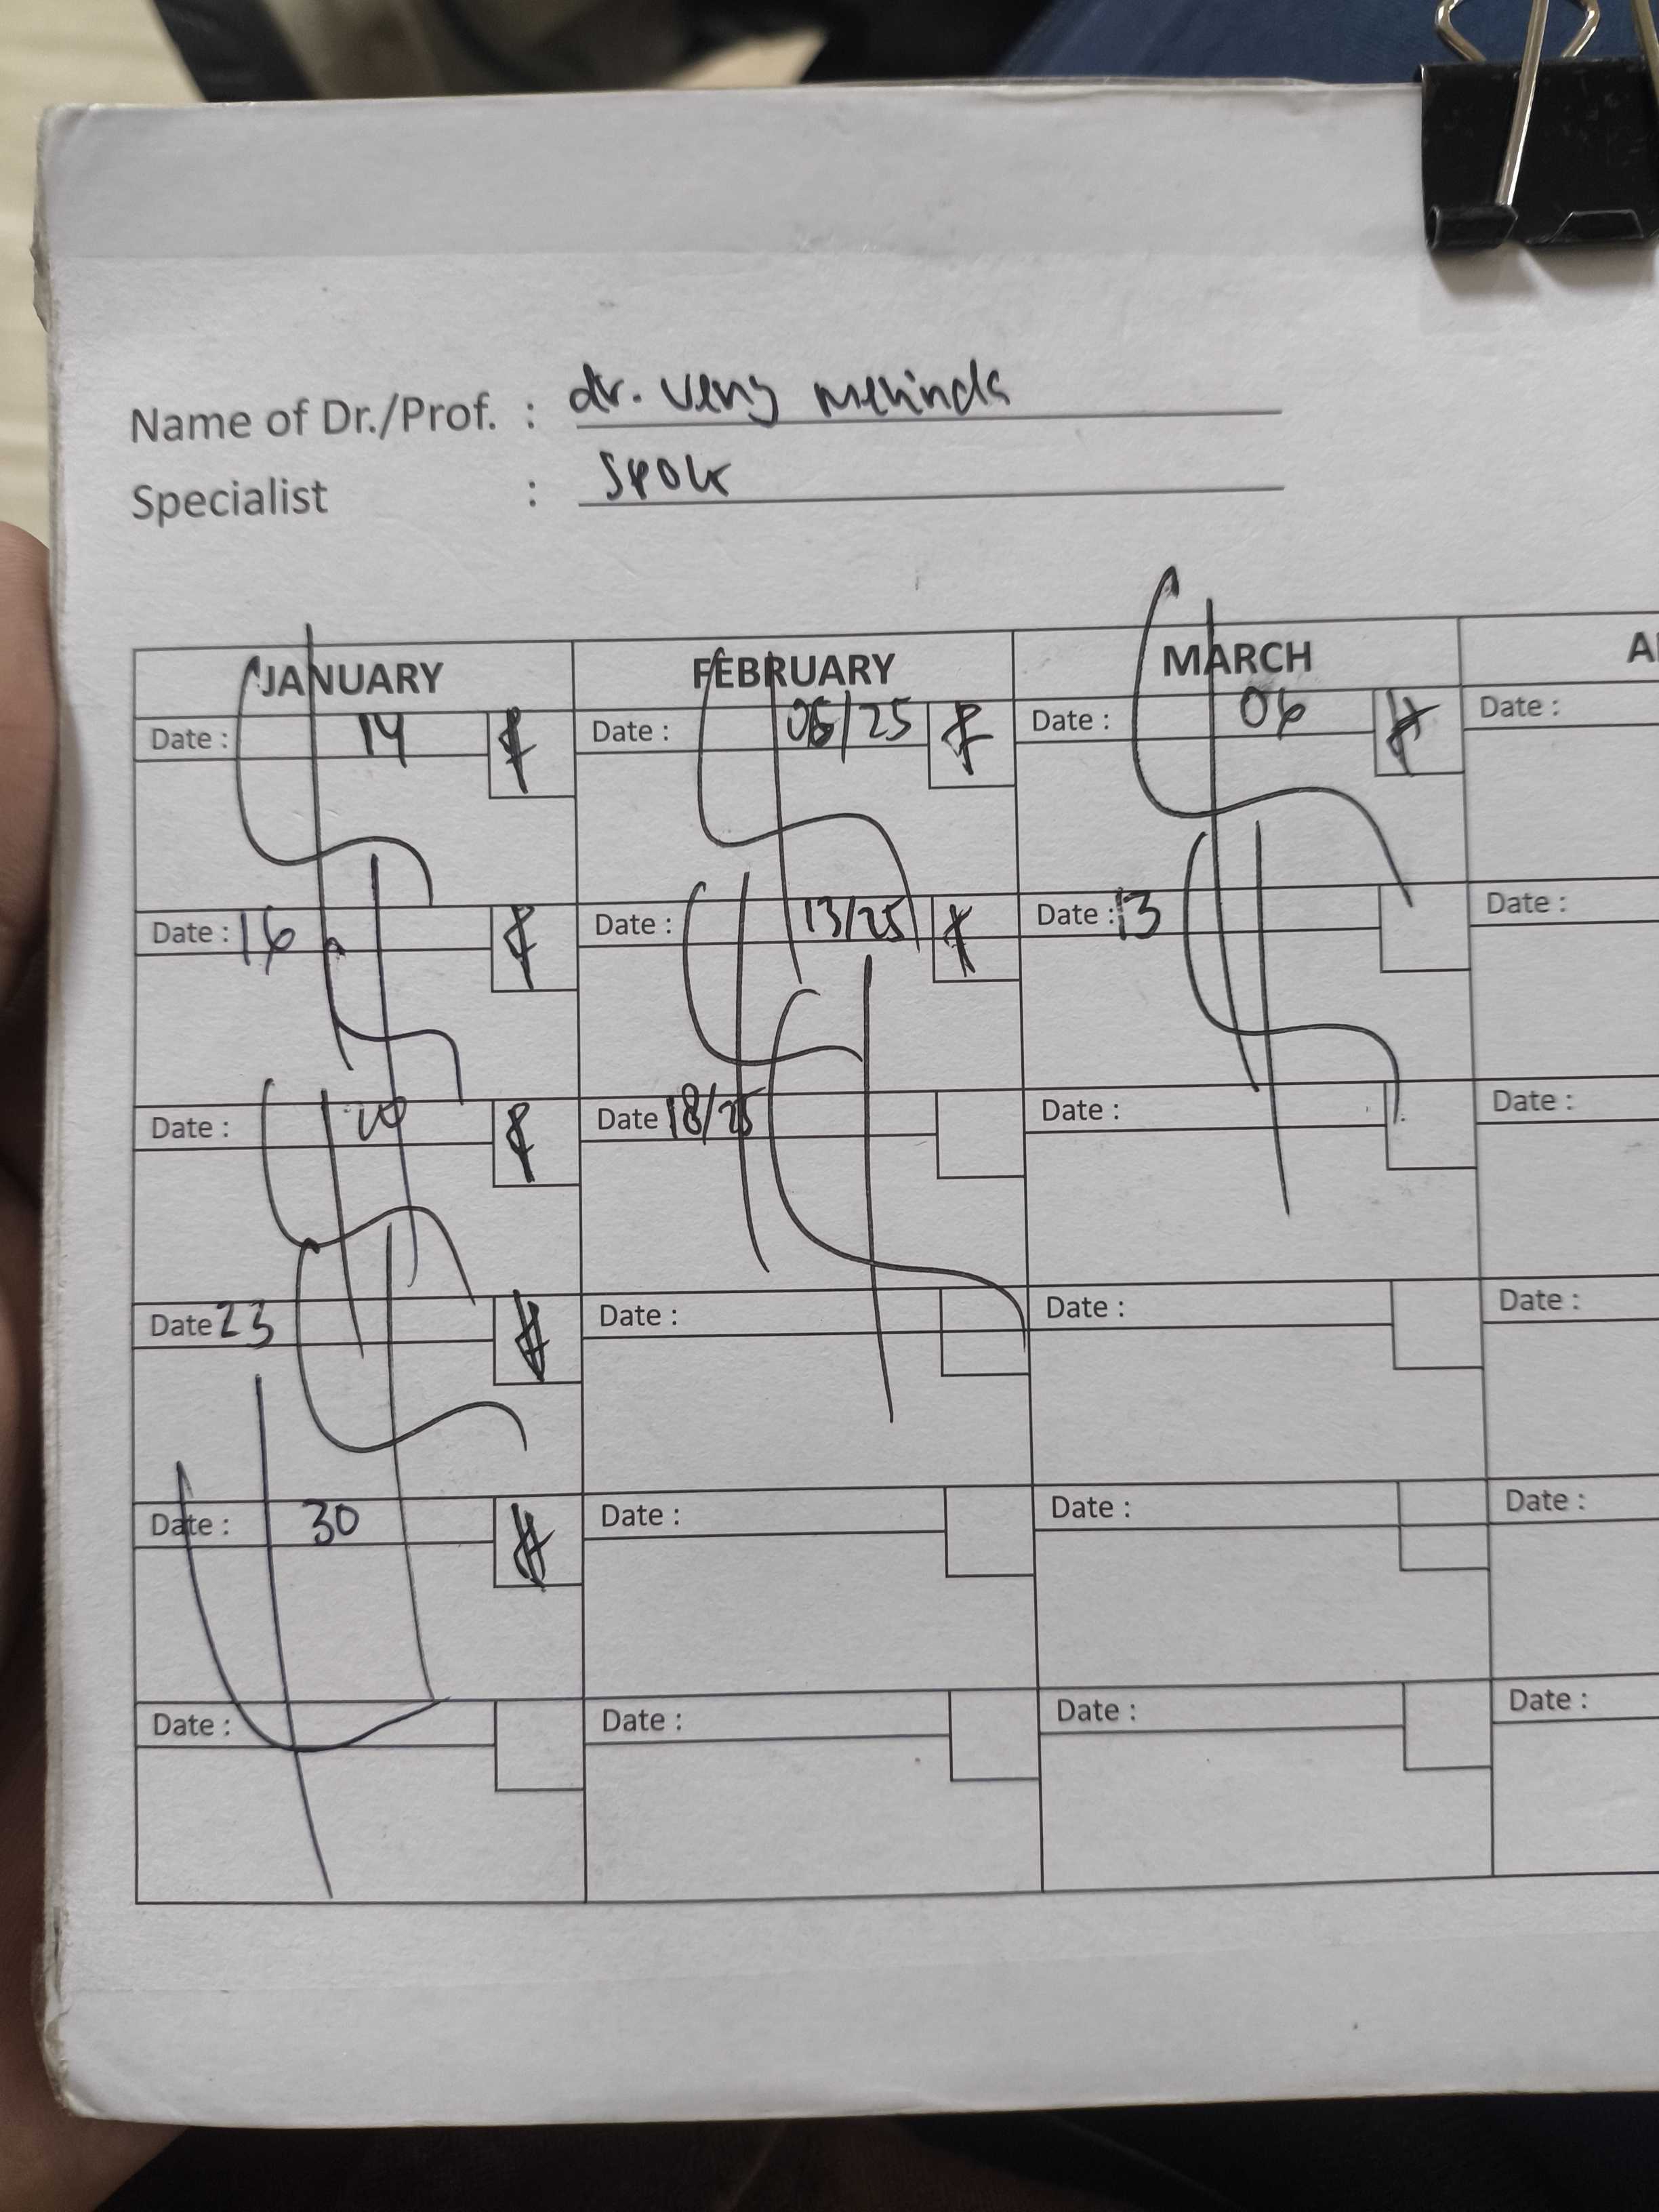 Name of Dr./Prof. : dr. Veny
Specialist :
JANUARY FEBRUARY MARCH
Date : 14 Date : 06/25 Date : 06 Date :
Date : 16 Date : 13/25 Date : 13 Date :
Date : 20 Date 18/25 Date : Date :
Date 23 Date : Date : Date :
Date : 30 Date : Date : Date :
Date : Date : Date : Date :